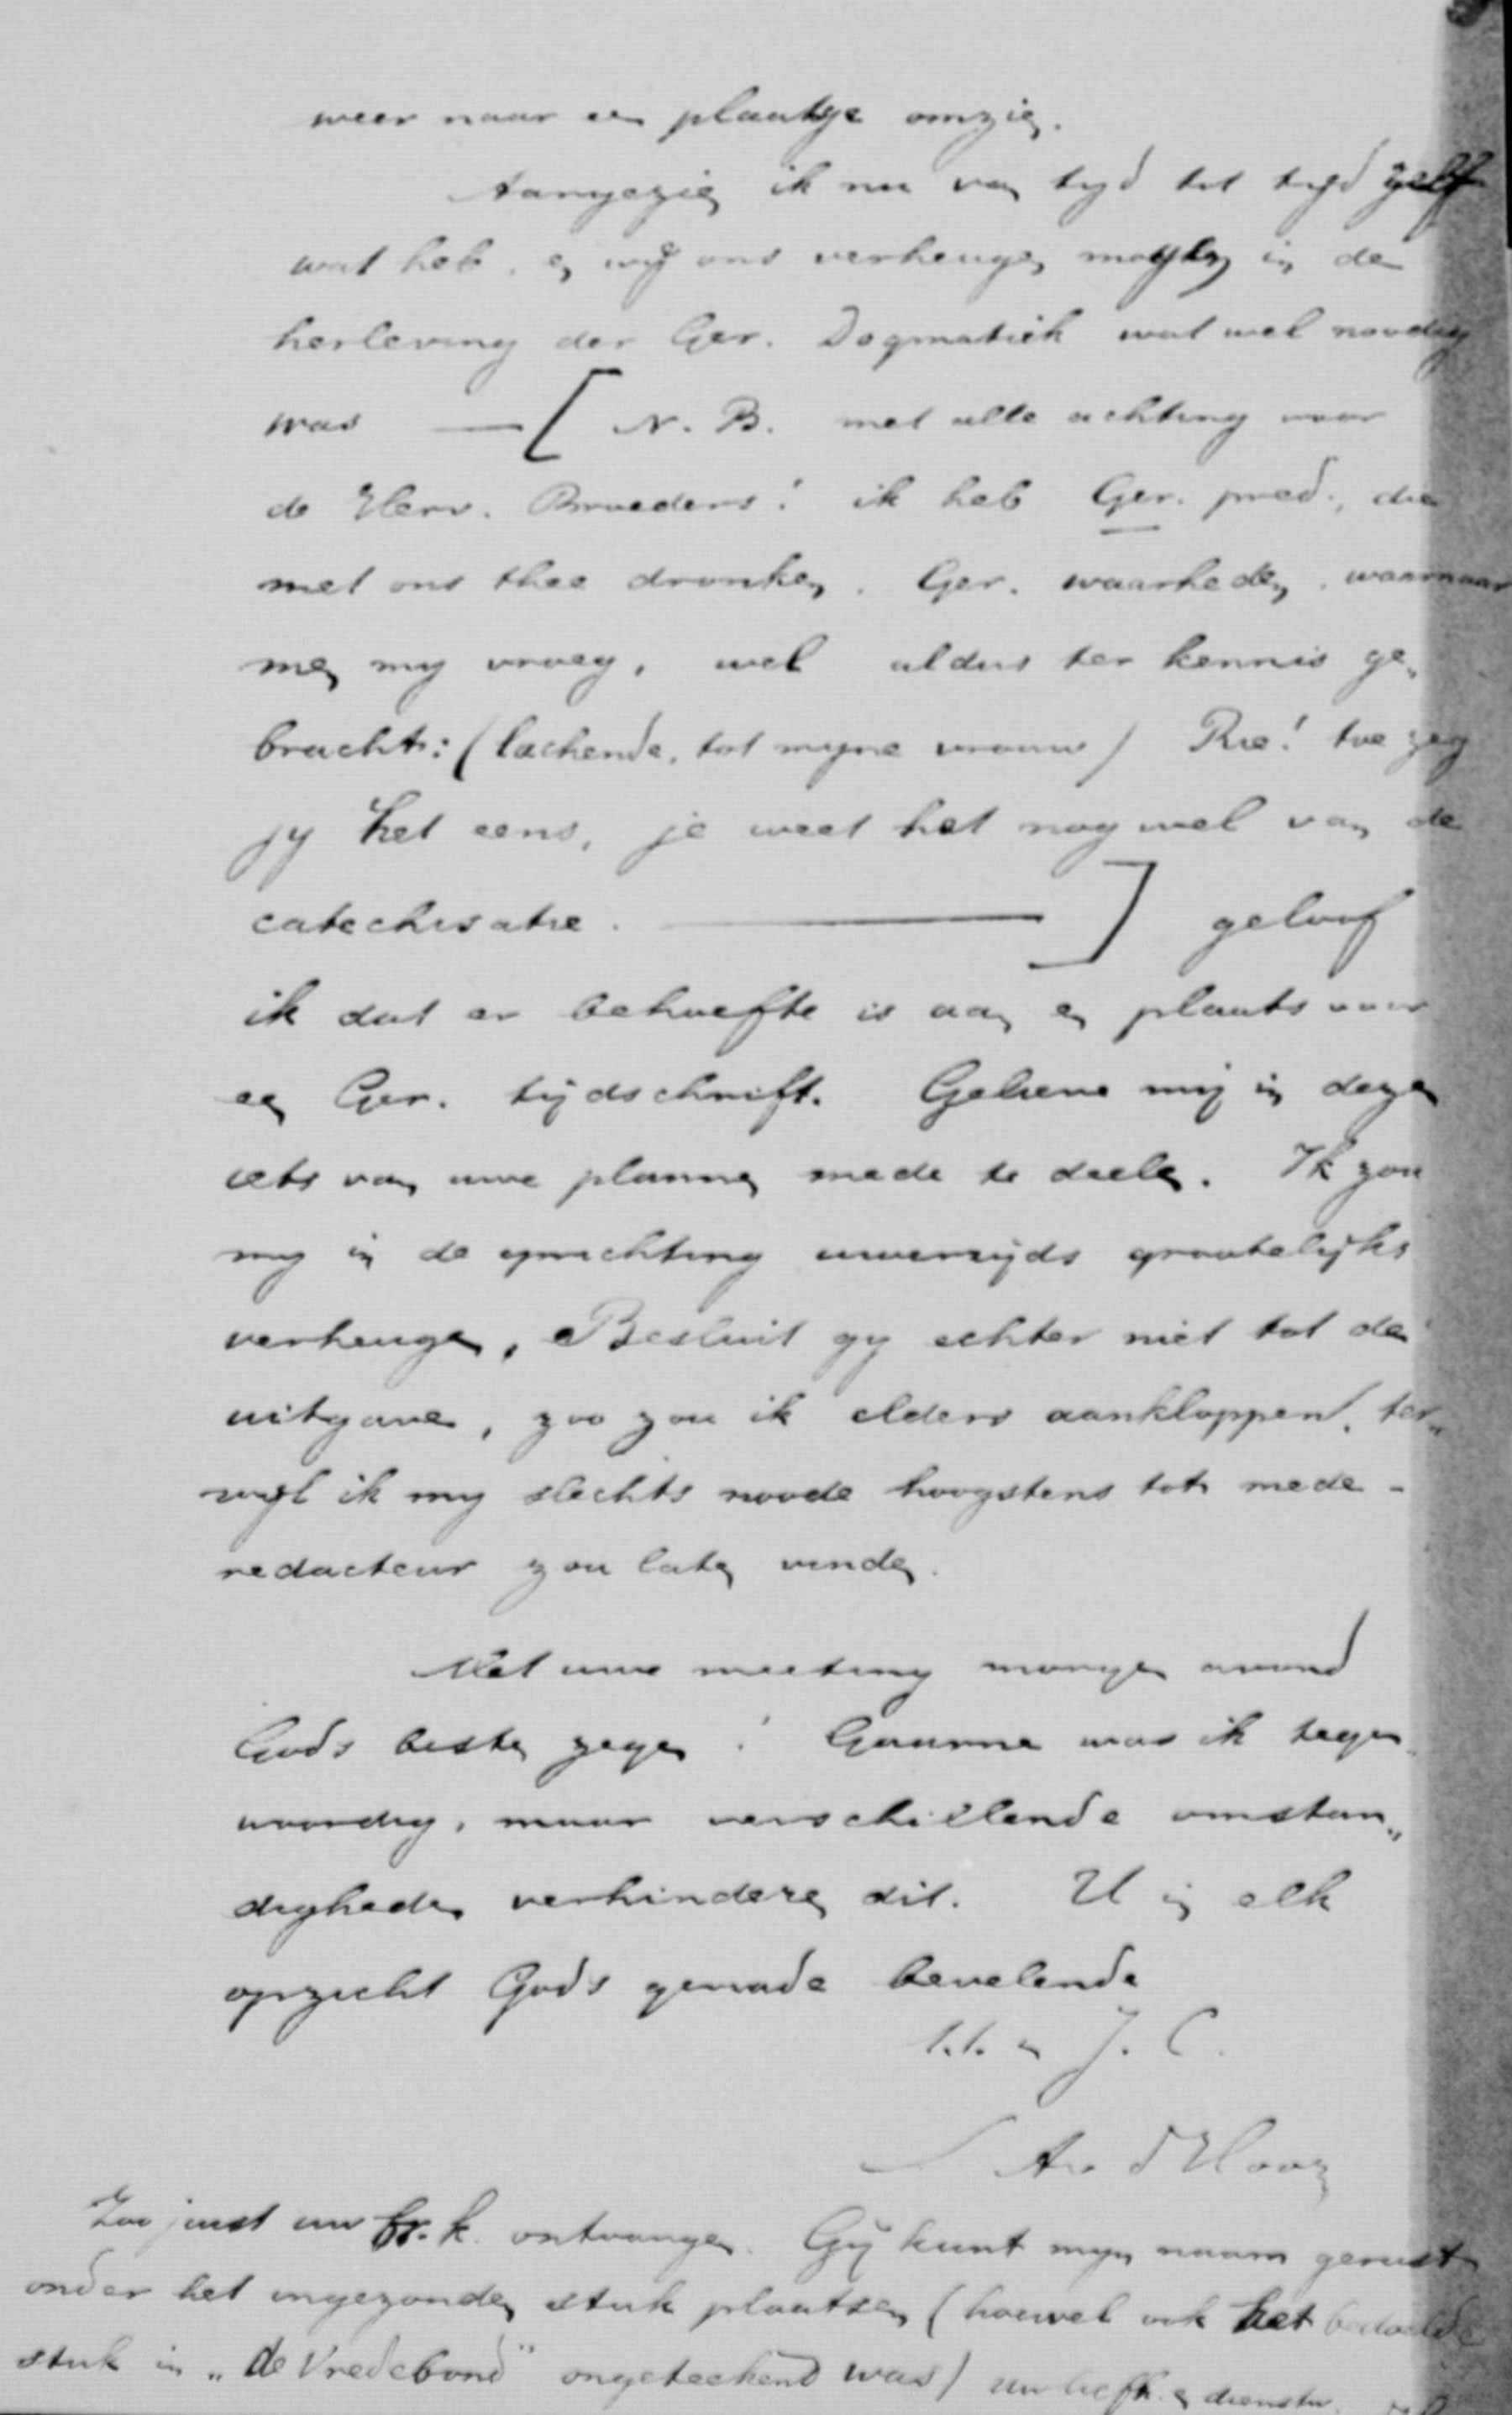 weer naar een plaatsje omzien.
Aangezien ik nu van tyd tot tijd zelf
wat heb, en wij ons verheugen mogen in de
herleving der Ger. Dogmatiek wat wel noodig
was — [ N. B. met alle achting voor
de Herv. Broeders! ik heb Ger. pred., die
met ons thee dronken, Ger. waarheden, waarnaar
men my vroeg, wel aldus ter kennis ge„
bracht: (lachende, tot myne vrouw) Rie! toe zeg
jy het eens, je weet het nog wel van de
catechisatie. — ] geloof
ik dat er behoefte is aan en plaats voor
een Ger. tijdschrift. Gelieve mij in dezen
iets van uwe plannen mede te deelen. Ik zou
my in de oprichting uwerzijds grootelijks
verheugen, Besluit gy echter niet tot de
uitgave, zoo zou ik elders aankloppen, ter„
wijl ik my slechts noode hoogstens tot mede-
redacteur zou laten vinden.
Met uwe meeting morgen avond
Gods besten zegen! Gaarne was ik tegen„
woordig, maar verschillende omstan„
digheden verhinderen dit. U in elk
opzicht Gods genade bevelende
t.t. in J. C.
Zoo juist uw br.k. ontvangen. Gij kunt myn naam gerust
onder het ingezonden stuk plaatsen (hoewel ook het bedoelde
stuk in „de Vredebond" ongeteekend was) uw liefh. en dienstw.